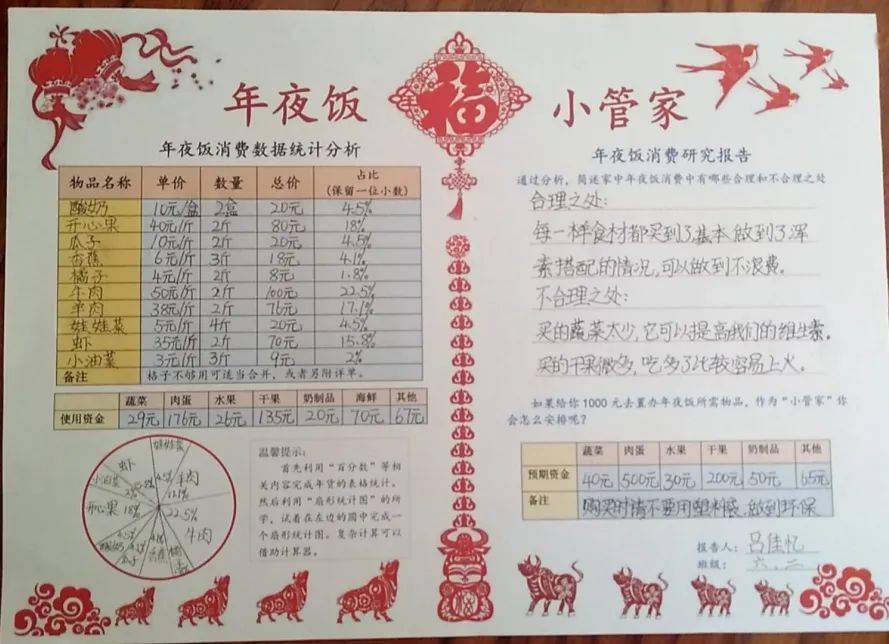 年夜饭
福
小管家
年夜饭消费数据统计分析
物品名称 单价 数量 总价 占比(保留一位小数)
酸奶 10元/盒 2盒 20元 4.5%
开心果 40元/斤 2斤 80元 18%
瓜子 10元/斤 2斤 20元 4.5%
香蕉 6元/斤 3斤 18元 4.1%
橘子 4元/斤 2斤 8元 1.8%
牛肉 50元/斤 2斤 100元 22.5%
羊肉 38元/斤 2斤 76元 17.1%
娃娃菜 5元/斤 4斤 20元 4.5%
虾 35元/斤 2斤 70元 15.8%
小油菜 3元/斤 3斤 9元 2%
备注 格子不够用可适当合并，或者另附详单。
蔬菜 肉蛋 水果 干果 奶制品 海鲜 其他
使用资金 29元 176元 26元 135元 20元 70元 67元
娃娃菜
虾
4.5%
羊肉
17.1%
小油菜
开心果 18%
22.5%
牛肉
酸奶
瓜子
温馨提示：
首先利用“百分数”等相
关内容完成年货的表格统计。
然后利用“扇形统计图”的所
学，试着在左边的圆中完成一
个扇形统计图。复杂计算可以
借助计算器。
年夜饭消费研究报告
通过分析，简述家中年夜饭消费中有哪些合理和不合理之处
合理之处：
每一样食材都买到了基本做到了浑
素搭配的情况，可以做到不浪费。
不合理之处：
买的蔬菜太少，它可以提高我们的维生素。
买的干果微多，吃多了比较容易上火。
如果给你1000元去置办年夜饭所需物品，作为“小管家”你
会怎么安排呢？
蔬菜 肉蛋 水果 干果 奶制品 其他
预期资金 40元 500元 30元 200元 50元 65元
备注 购买时请不要用塑料袋，做到环保
报告人：吕佳忆
班级：六、二